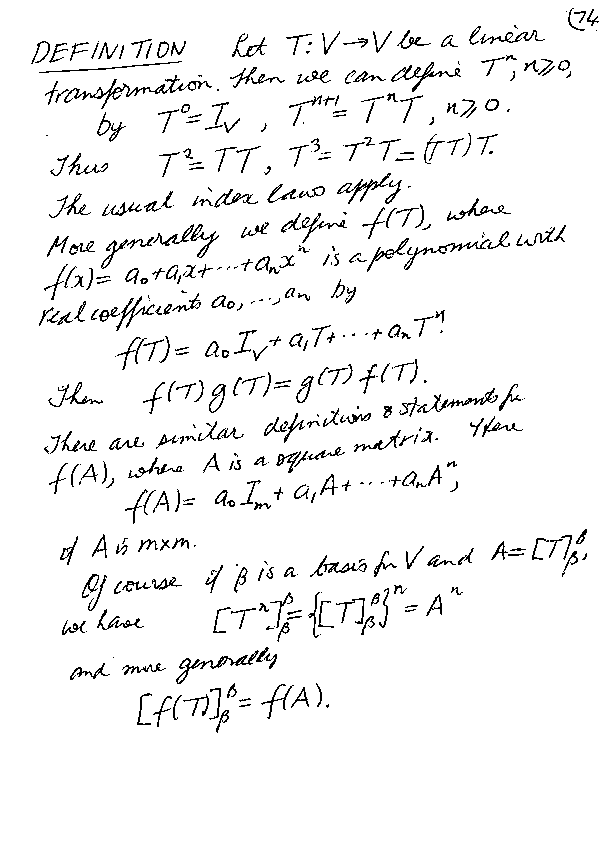 (74
DEFINITION Let T: V → V be a linear
transformation. Then we can define Tⁿ, n≥0,
by T⁰ = I_V, Tⁿ⁺¹ = TⁿT, n≥0.
Thus T² = TT, T³ = T²T = (TT)T.
The usual index laws apply.
More generally we define f(T), where
f(x) = a₀+a₁x+⋯+aₙxⁿ is a polynomial with
real coefficients a₀,…,aₙ by
f(T) = a₀I_V + a₁T+⋯+aₙTⁿ.
Then f(T)g(T) = g(T)f(T).
There are similar definitions & statements for
f(A), where A is a square matrix. Here
f(A) = a₀Iₘ + a₁A+⋯+aₙAⁿ,
if A is m×m.
Of course if β is a basis for V and A = [T]_β^β,
we have [Tⁿ]_β^β = {[T]_β^β}ⁿ = Aⁿ
and more generally
[f(T)]_β^β = f(A).